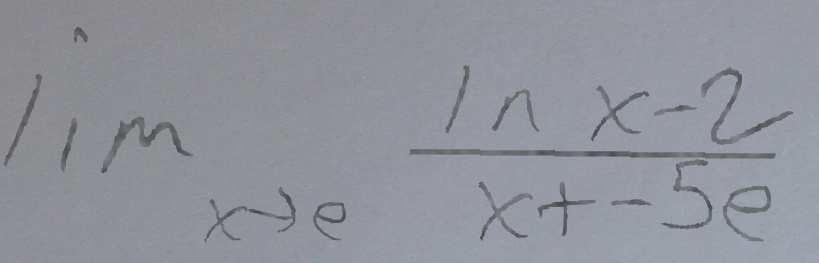 lim x→e ln x-2 / x+-5e